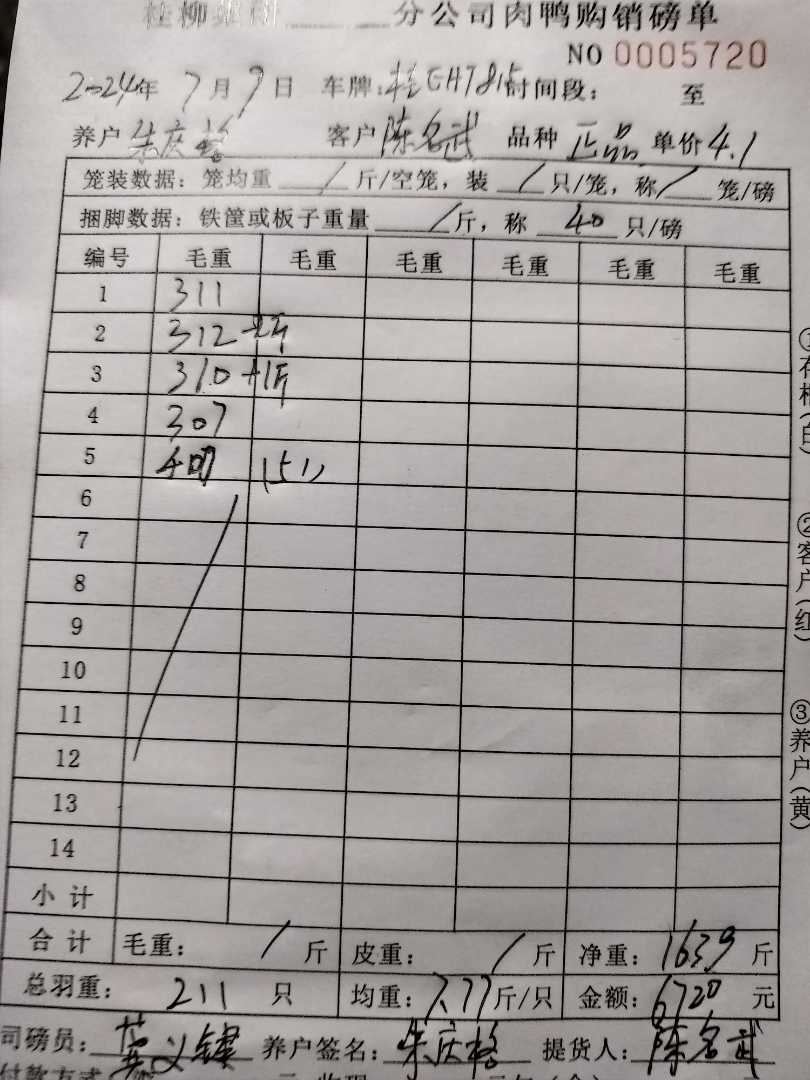 桂柳 分公司肉鸭购销磅单
NO 0005720
2024年 7月9日 车牌: 桂EH7815 时间段: 至
养户 朱庆格 客户 陈名武 品种 正品 单价 4.1
笼装数据: 笼均重 / 斤/空笼, 装 / 只/笼, 称 / 笼/磅
捆脚数据: 铁筐或板子重量 / 斤, 称 40 只/磅
编号 毛重 毛重 毛重 毛重 毛重 毛重
1 311
2 312
3 310 +1斤
4 307
5 (51)
6
7
8
9
10
11
12
13
14
小计
合计 毛重: / 斤 皮重: / 斤 净重: 1639 斤
总羽重: 211 只 均重: 7.77 斤/只 金额: 6720 元
司磅员: 养户签名: 朱庆格 提货人: 陈名武
付款方式
①存根(白)
②客户(红)
③养户(黄)